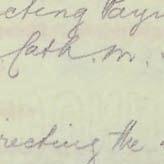 cting Paym
Cath. M.
recting the